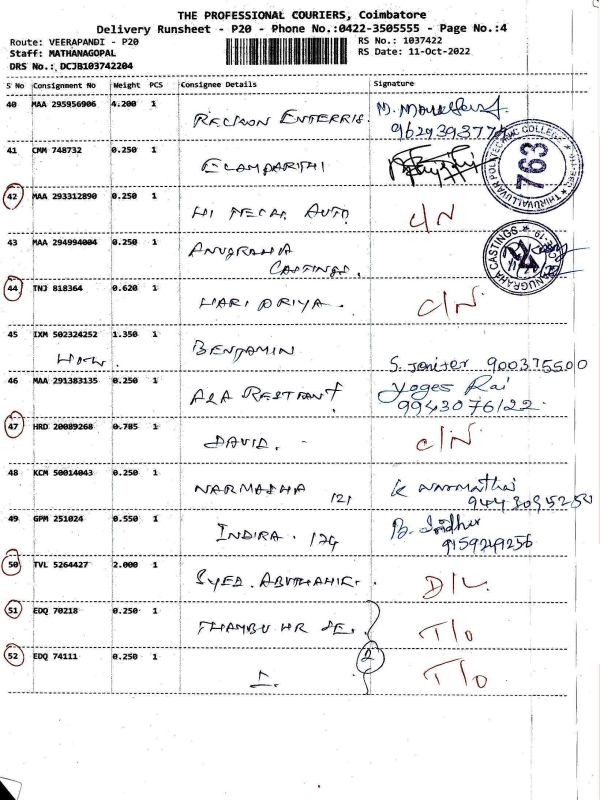 THE PROFESSIONAL COURIERS, Coimbatore
Delivery Runsheet - P20 - Phone No.:0422-3505555 - Page No.:4
Route: VEERAPANDI - P20
RS No.: 1037422
Staff: MATHANAGOPAL
RS Date: 11-Oct-2022
DRS No.: DCJB103742204
S No Consignment No Weight PCS Consignee Details Signature
40 MAA 295956906 4.200 1
41 CMM 748732 0.250 1 ELAMPARITHI
THIRUVALLUVAR POLYTECHNIC COLLEGE
763
42 MAA 293312890 0.250 1 HI TECH AUTO C/N
43 MAA 294994004 0.250 1 ANUGRAHA
CASTINGS.
ANUGRAHA CASTINGS
44 TNJ 818364 0.620 1 HARI PRIYA. C/N
45 IXM 502324252 1.350 1 BENJAMIN
S. 900375500
46 MAA 291383135 0.250 1 Yoges Rai
9943076122
47 HRD 20089268 0.785 1 DAVID. C/N
48 KCM 50014043 0.250 1 NARMADHA 121 K Narmatha
49 GPM 251024 0.550 1 INDIRA. 124 B.
9159249256
50 TVL 5264427 2.000 1 SYED. ABUTHAHIR. D/L
51 EDQ 70218 0.250 1 T/O
52 EDQ 74111 0.250 1 2 T/O